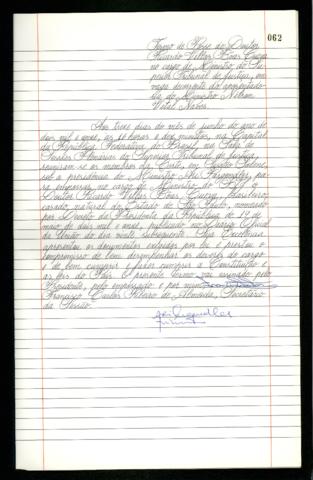 062
Termo de Posse do Doutor
Ricardo Villas Bôas Cueva
no cargo de Ministro do Su-
perior Tribunal de Justiça, em
vaga decorrente da aposentado-
ria do Ministro Nilson
Vital Naves.
Aos treze dias do mês de junho do ano de
dois mil e onze, às horas e dez minutos, na Capital
da República Federativa do Brasil, na Sala de
Sessões Plenárias do Superior Tribunal de Justiça,
reuniram-se os membros da Corte, em Sessão Solene,
sob a presidência do Ministro Ari Pargendler, pa-
ra empossar, no cargo de Ministro do STJ, o
Doutor Ricardo Villas Bôas Cueva, brasileiro,
casado, natural do Estado de São Paulo, nomeado
por Decreto da Presidenta da República de 19 de
maio de dois mil e onze, publicado no Diário Oficial
da União do dia subsequente. Sua Excelência
apresentou os documentos exigidos por lei e prestou o
compromisso de bem desempenhar os deveres do cargo
e de bem cumprir e fazer cumprir a Constituição e
as leis do País. O presente termo vai assinado pelo
Presidente, pelo empossado e por mim
Francisco Carlos Ribeiro de Almeida, Secretário
da Sessão.